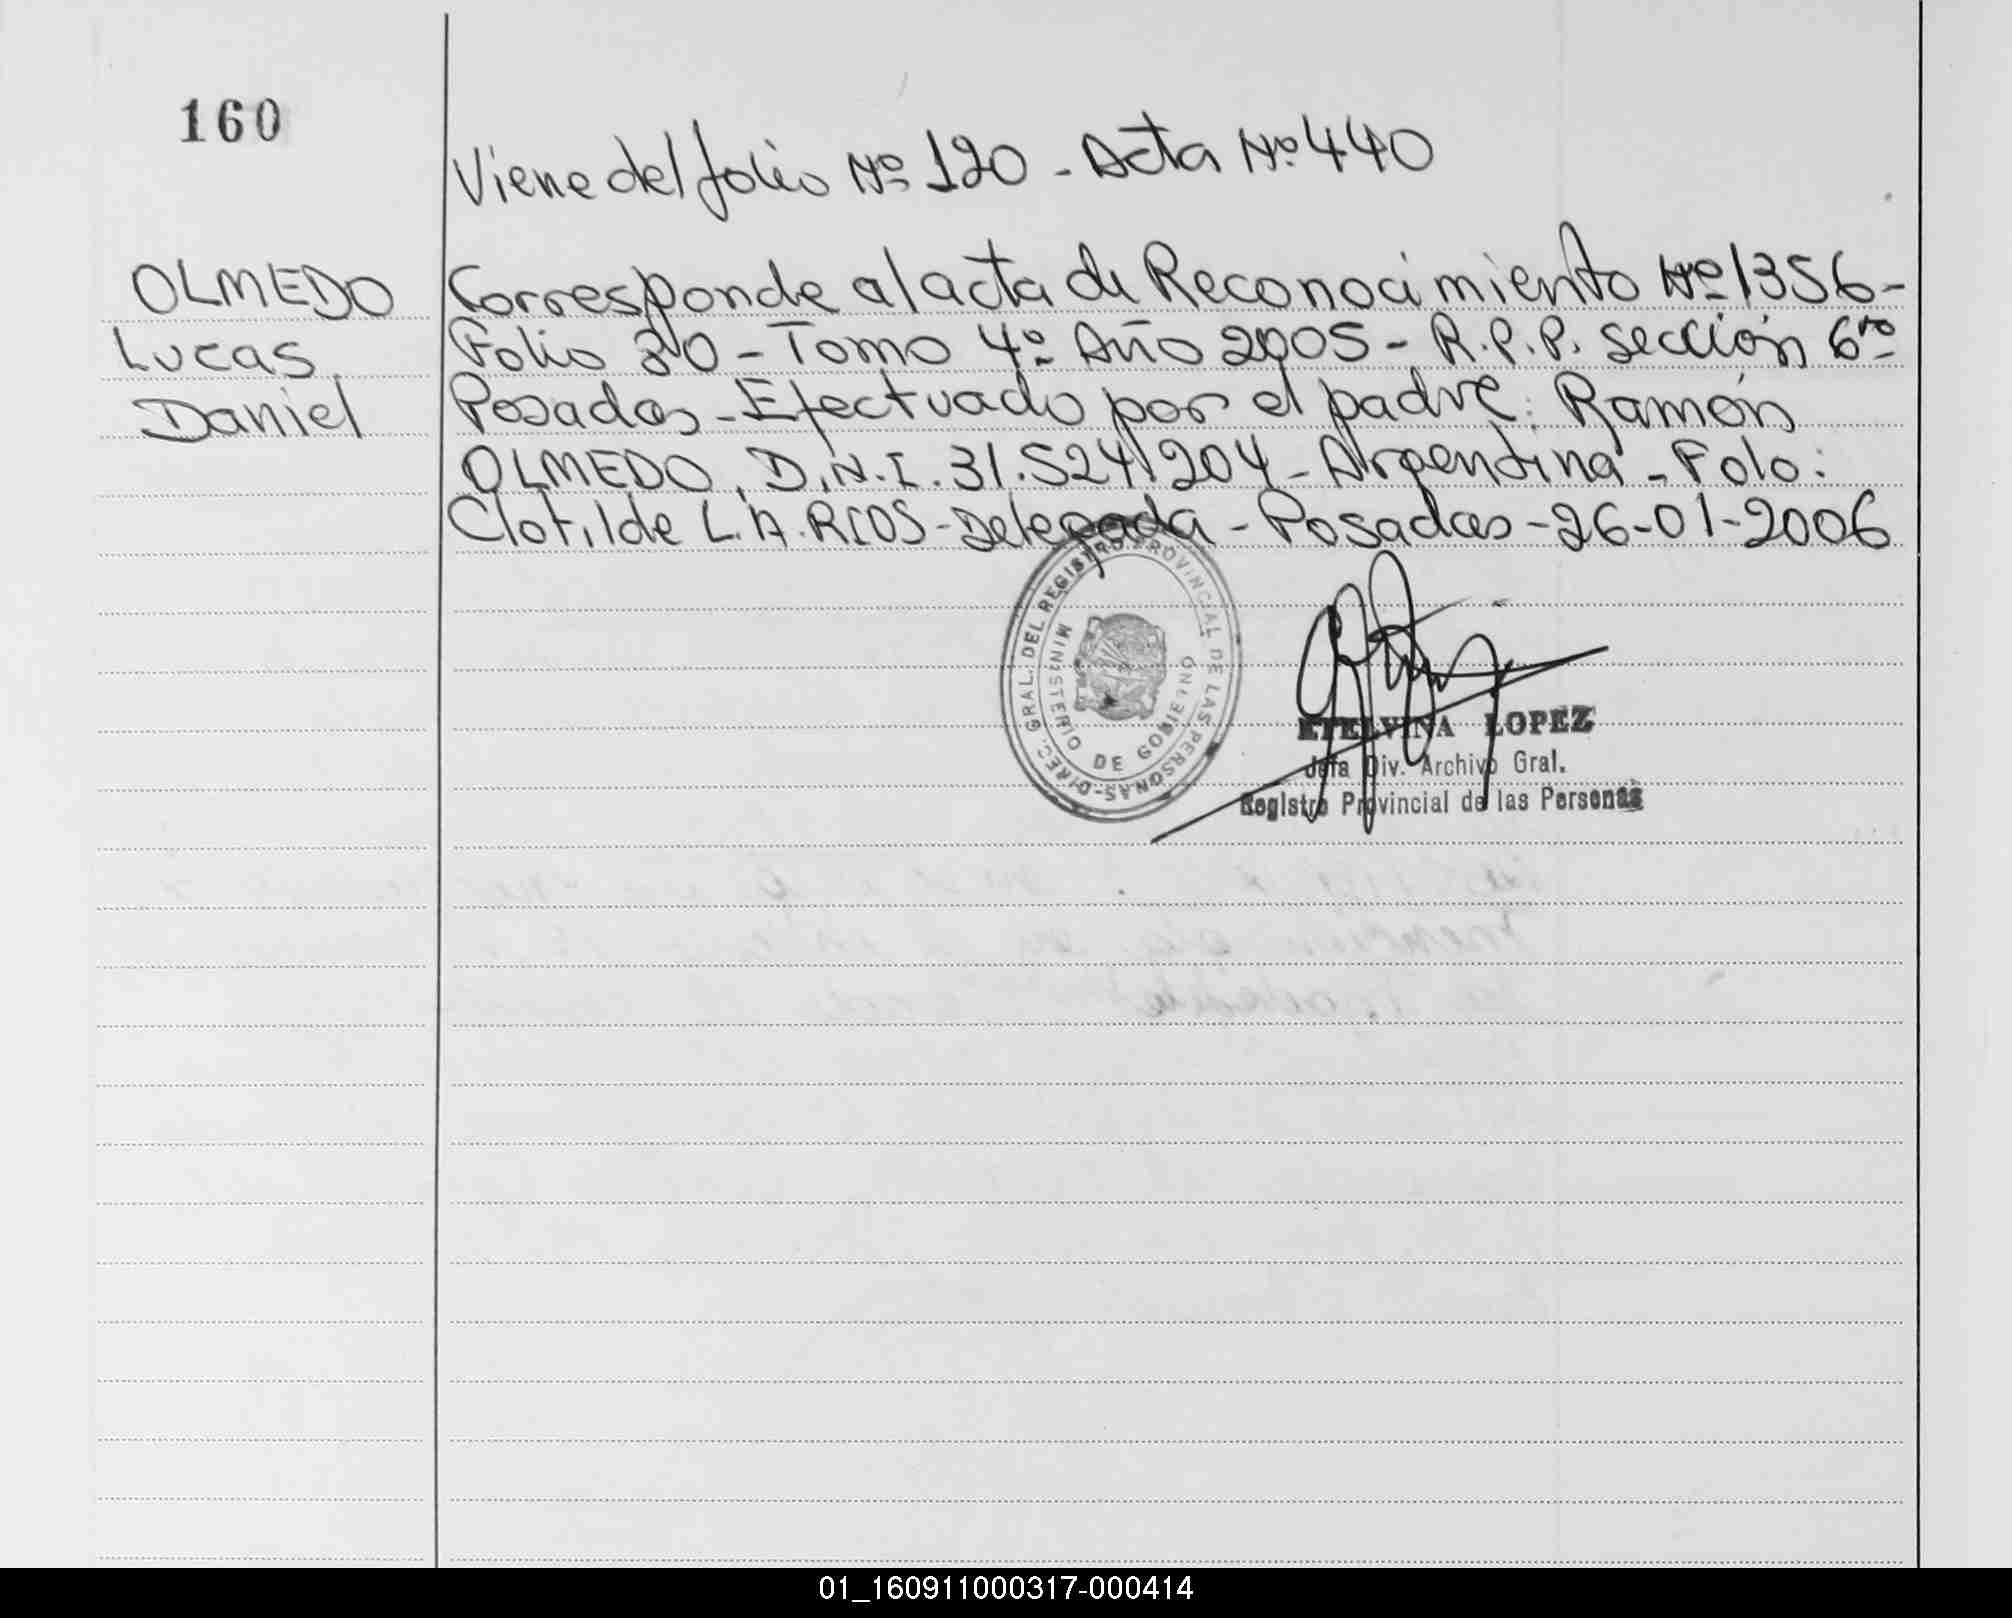 160
Viene del folio Nº 120 - Acta Nº 440
OLMEDO
Lucas
Daniel
Corresponde al acta de Reconocimiento Nº 1356 -
Folio 30 - Tomo 4º Año 2005 - R.P.P. sección 6ta
Posadas - Efectuado por el padre: Ramón
OLMEDO, D.N.I. 31.524.204 - Argentina - Folo:
Clotilde L.A. RIOS - Delegada - Posadas - 26-01-2006
DIREC. GRAL. DEL REGISTRO PROVINCIAL DE LAS PERSONAS-
MINISTERIO DE GOBIERNO
ETELVINA LOPEZ
Jefa Div. Archivo Gral.
Registro Provincial de las Personas
01_160911000317-000414